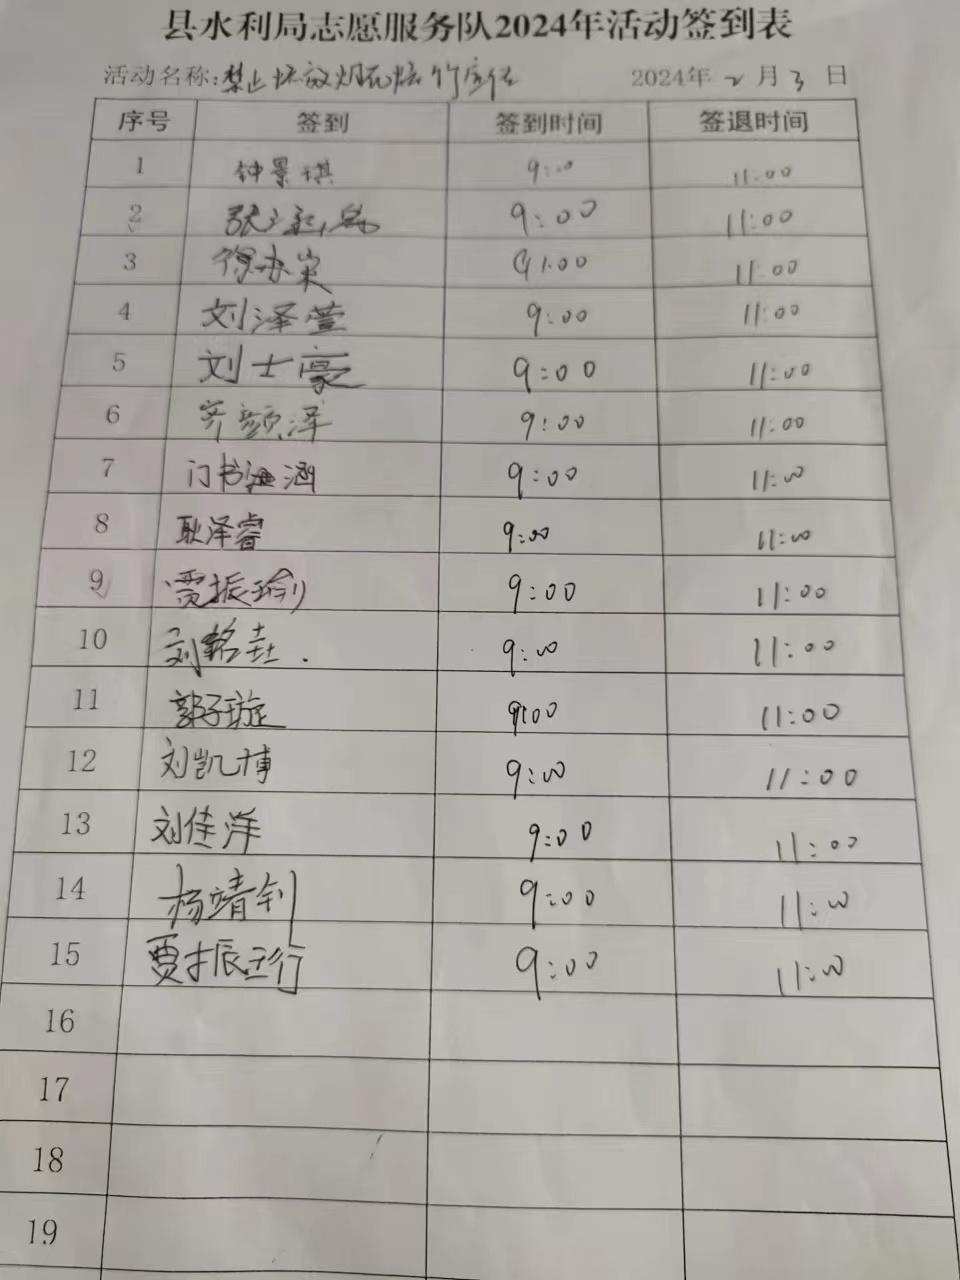 县水利局志愿服务队2024年活动签到表
活动名称:禁止燃放烟花炮竹宣传 2024年2月3日
序号 签到 签到时间 签退时间
1 钟景琪 9:00 11:00
2 张 9:00 11:00
3 徐 9:00 11:00
4 刘泽萱 9:00 11:00
5 刘士豪 9:00 11:00
6 齐颜泽 9:00 11:00
7 门书涵 9:00 11:00
8 耿泽睿 9:00 11:00
9 贾振瑜 9:00 11:00
10 刘铭垚. 9:00 11:00
11 郭子璇 9:00 11:00
12 刘凯博 9:00 11:00
13 刘佳洋 9:00 11:00
14 杨靖钊 9:00 11:00
15 贾振行 9:00 11:00
16
17
18
19